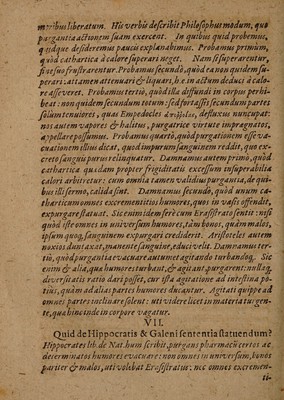 moribus liberatum. His verbis describit Philosophus modum, quo
purgantia actionem suam exercent. In quibus quid probemus,
quidque desideremus paucis explanabimus. Probamus primùm,
quòd cathartica à calore superari neget. Nam si superarentur,
suo frustrarentur. Probamus secundò, quòd ea non quidem su-
perari at tamen attenuari & liquari, h.e. in actum deduci à calo-
re asseveret. Probamus tertiò, quòd illa diffundi in corpus perhi-
beat: non quidem secundum totum: sed fortassis secundum partes
solùm tenuiores, quas Empedocles defluxus nuncupat:
nos autem vapores & halitus, purgatrice virtute impregnatos,
appellare possumus. Probamus quartò, quòd purgationem esse va-
cuationem illius dicat, quod impurum sanguinem reddit, quo ex-
creto sanguis purus relinquatur. Damnamus autem primò, quòd
cathartica quædam propter frigiditatis excessum insuperabilia
calori arbitretur: cum omnia tamen validius purgantia, de qui-
bus illi sermo, calida sint. Damnamus secundò, quòd unum ca-
tharticum omnes excrementitios humores, quos in vasis offendit,
expurgare statuat. Sic enim idem ferè cum Erasistrato sentit: nisi
quòd iste omnes in universum humores, tàm bonos, quàm malos,
ipsum quoq; sanguinem expurgari crediderit. Aristoteles autem
noxios duntaxat, manente sanguine, educi velit. Damnamus ter-
tiò, quòd purgantia vacuare autumet agitando turbandoq;. Sic
enim & alia, quæ humores turbant, & agitant, purgarent: nullaq;
diversitatis ratio dari posset, cur ista agitatione ad intestina po-
tius, quàm ad alias partes humores ducantur. Agitati quippe ad
omnes partes inclinare solent: uti videre licet in materia turgen-
te, quæ hinc inde in corpore vagatur.
VII.
Quid de Hippocratis & Galeni sententia statuendum?
Hippocrates lib. de Nat. hum. scribit, purgans pharmacũ certos ac
determinatos humores evacuare: non omnes in universum, bonos
pariter & malos, uti volebat Erasistratus: nec omnes excremen-
ti-